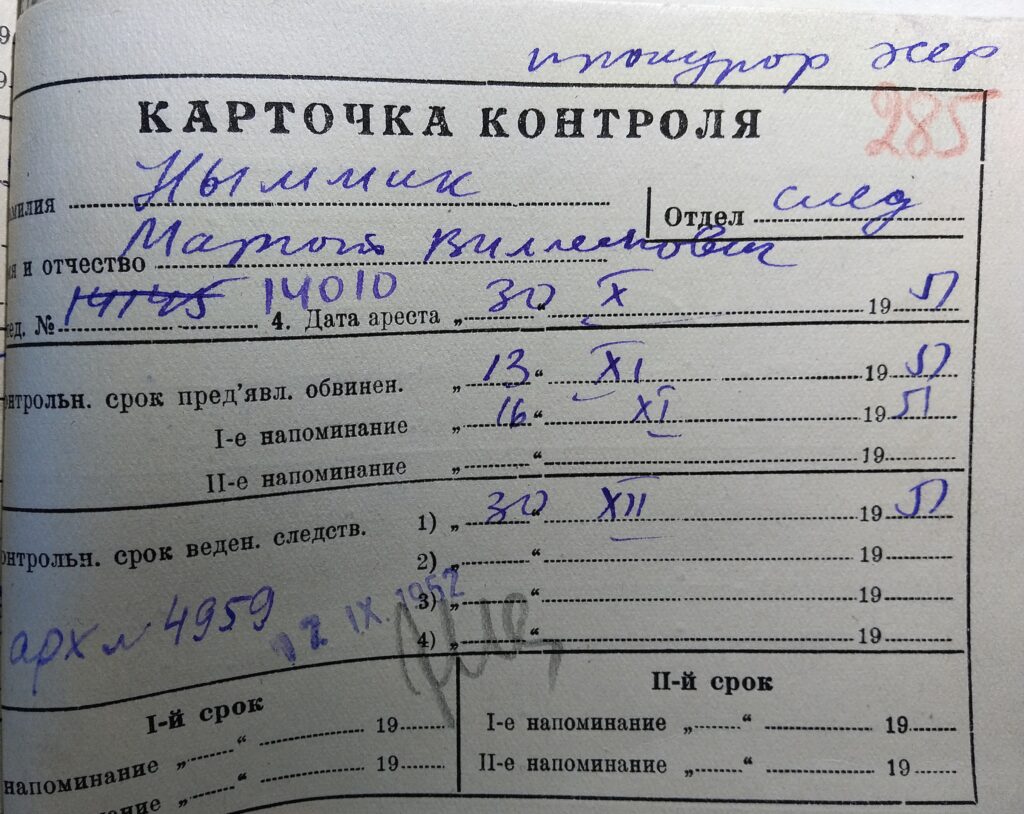 прокурор
КАРТОЧКА КОНТРОЛЯ
285
милия Ныммик
Отдел след
и отчество Вилле
ед. № 14145 14010 4. Дата ареста „30“ X 1951
нтрольн. срок пред’явл. обвинен. „13“ XI 1951
I-е напоминание „16“ XI 1951
II-е напоминание „ “ 19
онтрольн. срок веден. следств. 1) „30“ XII 1951
2) „ “ 19
3) „ “ 19
4) „ “ 19
арх № 4959
12 IX. 1952
I-й срок
II-й срок
„ “ 19
I-е напоминание „ “ 19
напоминание „ “ 19
II-е напоминание „ “ 19
ние „ “